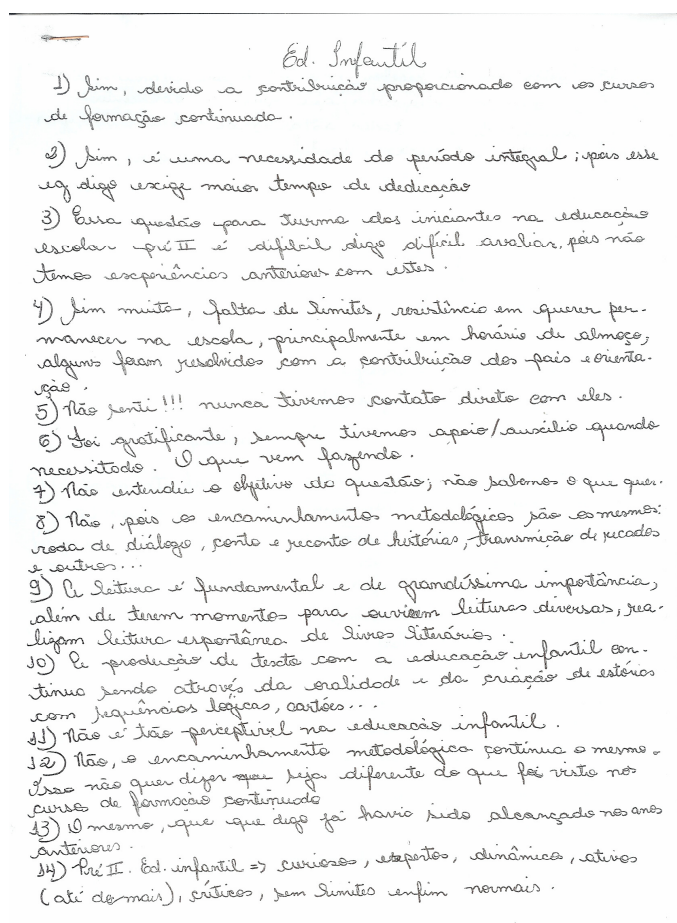 Ed. Infantil
1) Sim, devido a contribuição proporcionado com os cursos
de formação continuada.
2) Sim, é uma necessidade do período integral; pois esse
eq digo exige maior tempo de dedicação
3) Essa questão para turma dos iniciantes na educação
escolar pré II é difilcil digo difícil avaliar, pois não
temos experiências anteriores com estes.
4) Sim muita, falta de limites, resistência em querer per-
manecer na escola, principalmente em horário de almoço,
alguns foram resolvidos com a contribuição dos pais e orienta-
ção.
5) Não senti!!! nunca tivemos contato direto com eles.
6) Foi gratificante, sempre tivemos apoio/auxílio quando
necessitado. O que vem fazendo.
7) Não entendi o objetivo da questão; não sabemos o que quer.
8) Não, pois os encaminhamentos metodológicos são os mesmos:
roda de diálogo, conto e reconto de histórias, transmição de recados
e outros...
9) A leitura é fundamental e de grandíssima importância,
além de terem momentos para ouvirem leituras diversas, rea-
lizam leitura espontânea de livros literários.
10) A produção de texto com a educação infantil con-
tinua sendo através da oralidade e da criação de estórias
com sequências lógicas, cartões...
11) Não é tão perceptível na educação infantil.
12) Não, o encaminhamento metodológico continua o mesmo.
Isso não quer dizer que seja diferente do que foi visto nos
curso de formação continuada
13) O mesmo, que que digo já havia sido alcançado nos anos
anteriores.
14) Pré II. Ed. infantil => curiosos, espertos, dinâmico, ativos
(até demais), críticos, sem limites enfim normais.